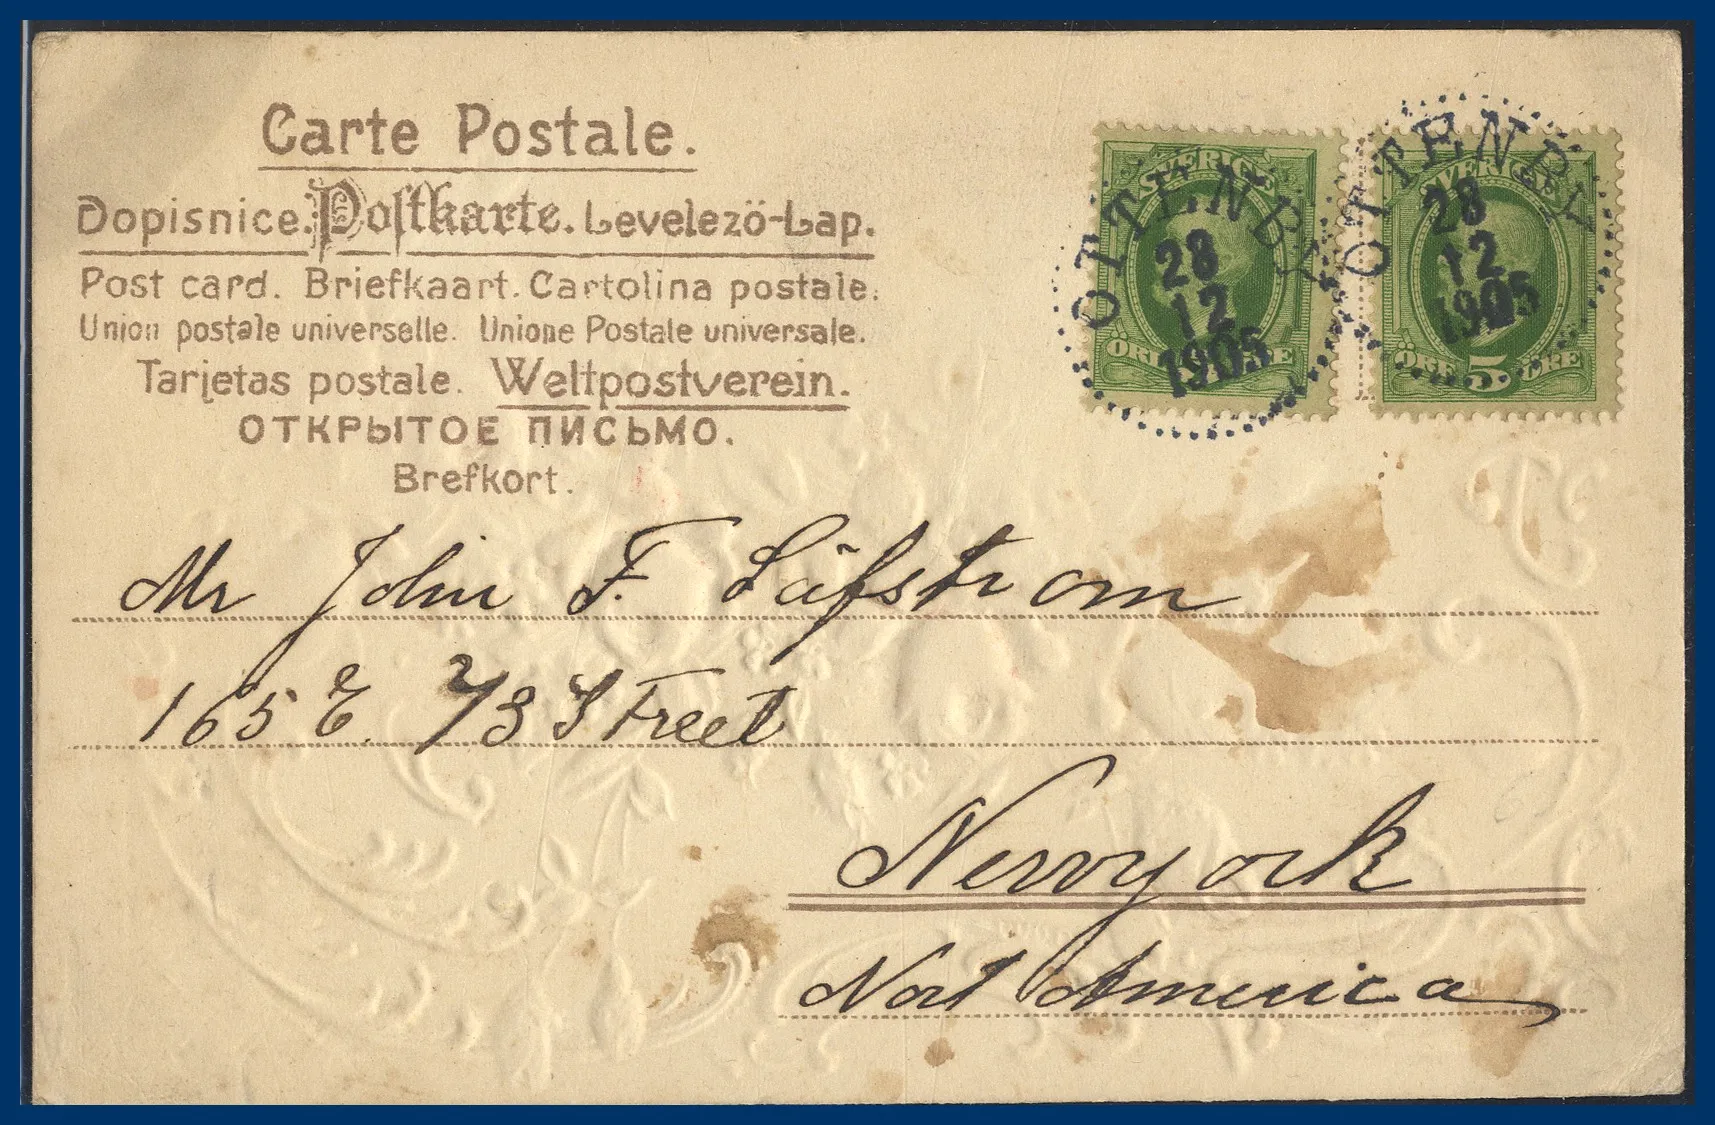 Carte Postale.
Dopisnice. Postkarte. Levelezö-Lap.
Post card. Briefkaart. Cartolina postale.
Union postale universelle. Unione Postale universale.
Tarjetas postale. Weltpostverein.
ОТКРЫТОЕ ПИСЬМО.
Brefkort.
SVERIGE
OTTENBY
28
12
1905
ÖRE
SVERIGE
OTTENBY
28
12
1905
ÖRE 5 ÖRE
Mr John F. Läfstrom
165 E. 73 Street
Newyork
Nort America